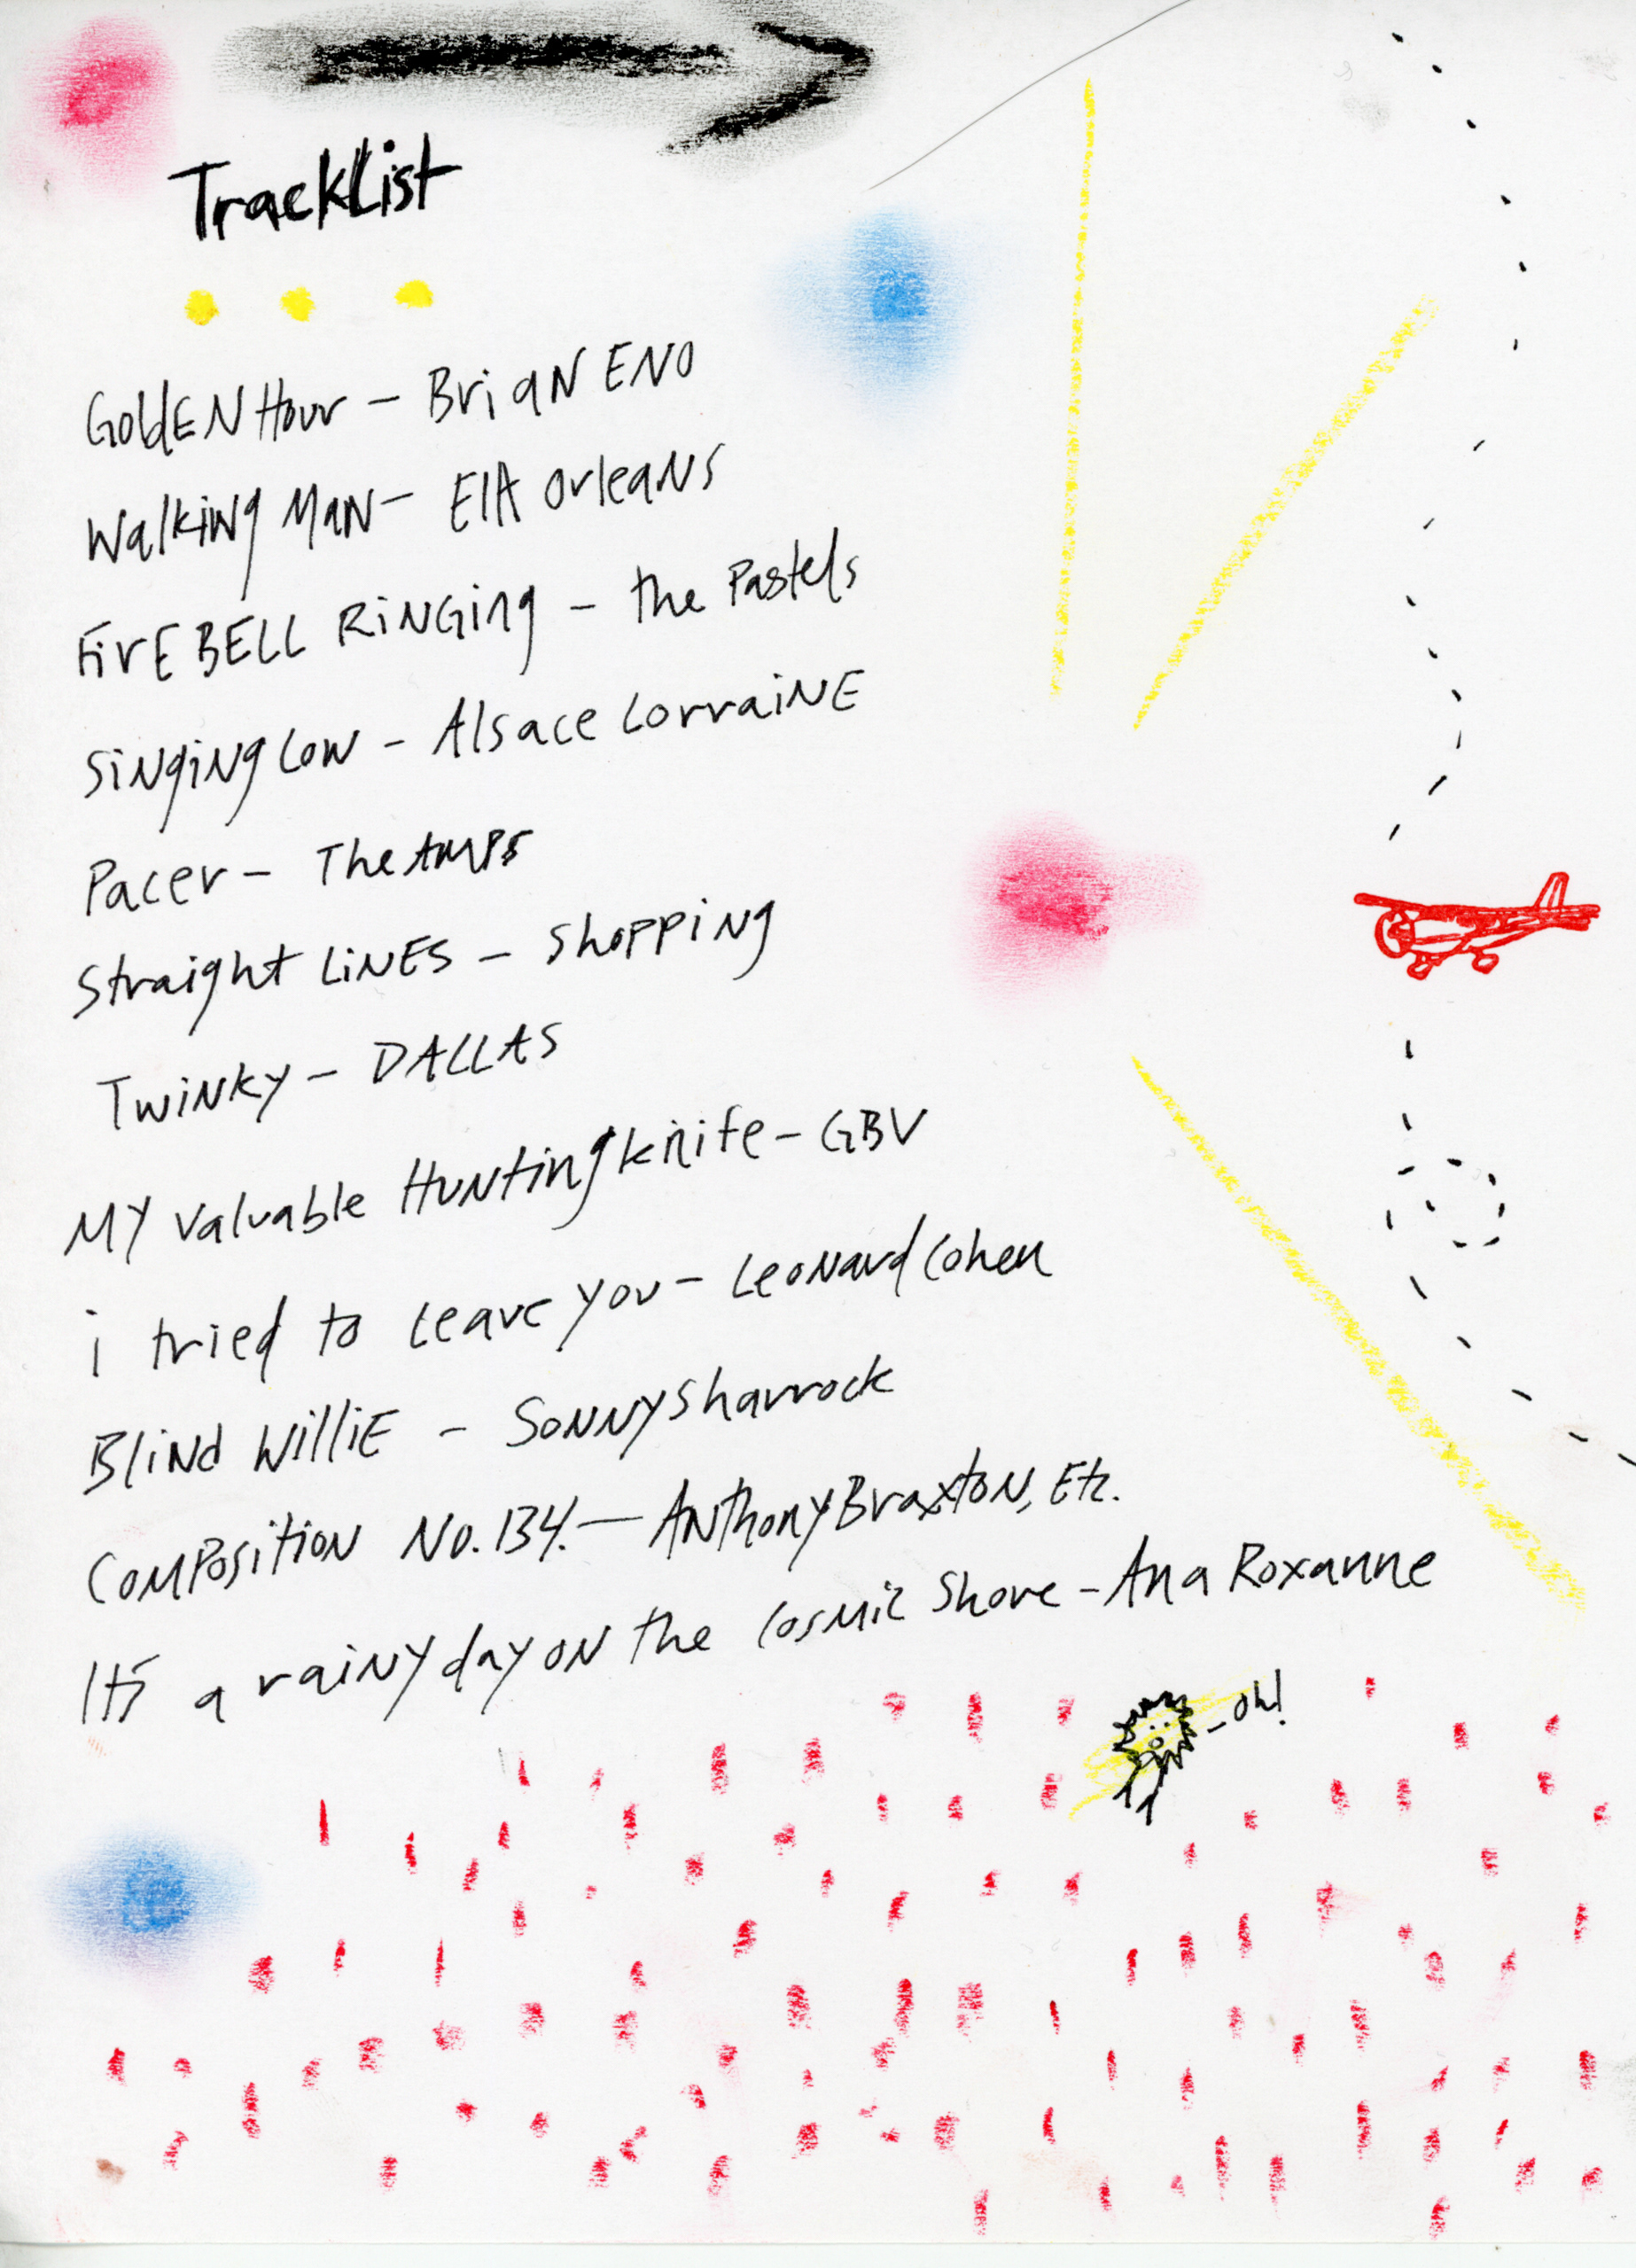 TrackList
GoldEN Hour - BriaN ENO
Walking MaN - ElA OrleaNS
FirE BELL RiNGing - the Pastels
SiNgiNg Low - Alsace LorraiNE
Pacer - The AMPS
Straight LiNES - ShoPPiNg
TwiNKY - DALLAS
MY Valuable HuNting knife - GBV
i tried to Leave you - LeoNard Cohen
BliNd WilliE - SoNNy Sharrock
COMPOSitioN No. 134. - ANthony BraxtoN, Etc.
It's a raiNy day oN the CosMic Shore - Ana Roxanne
- Oh!